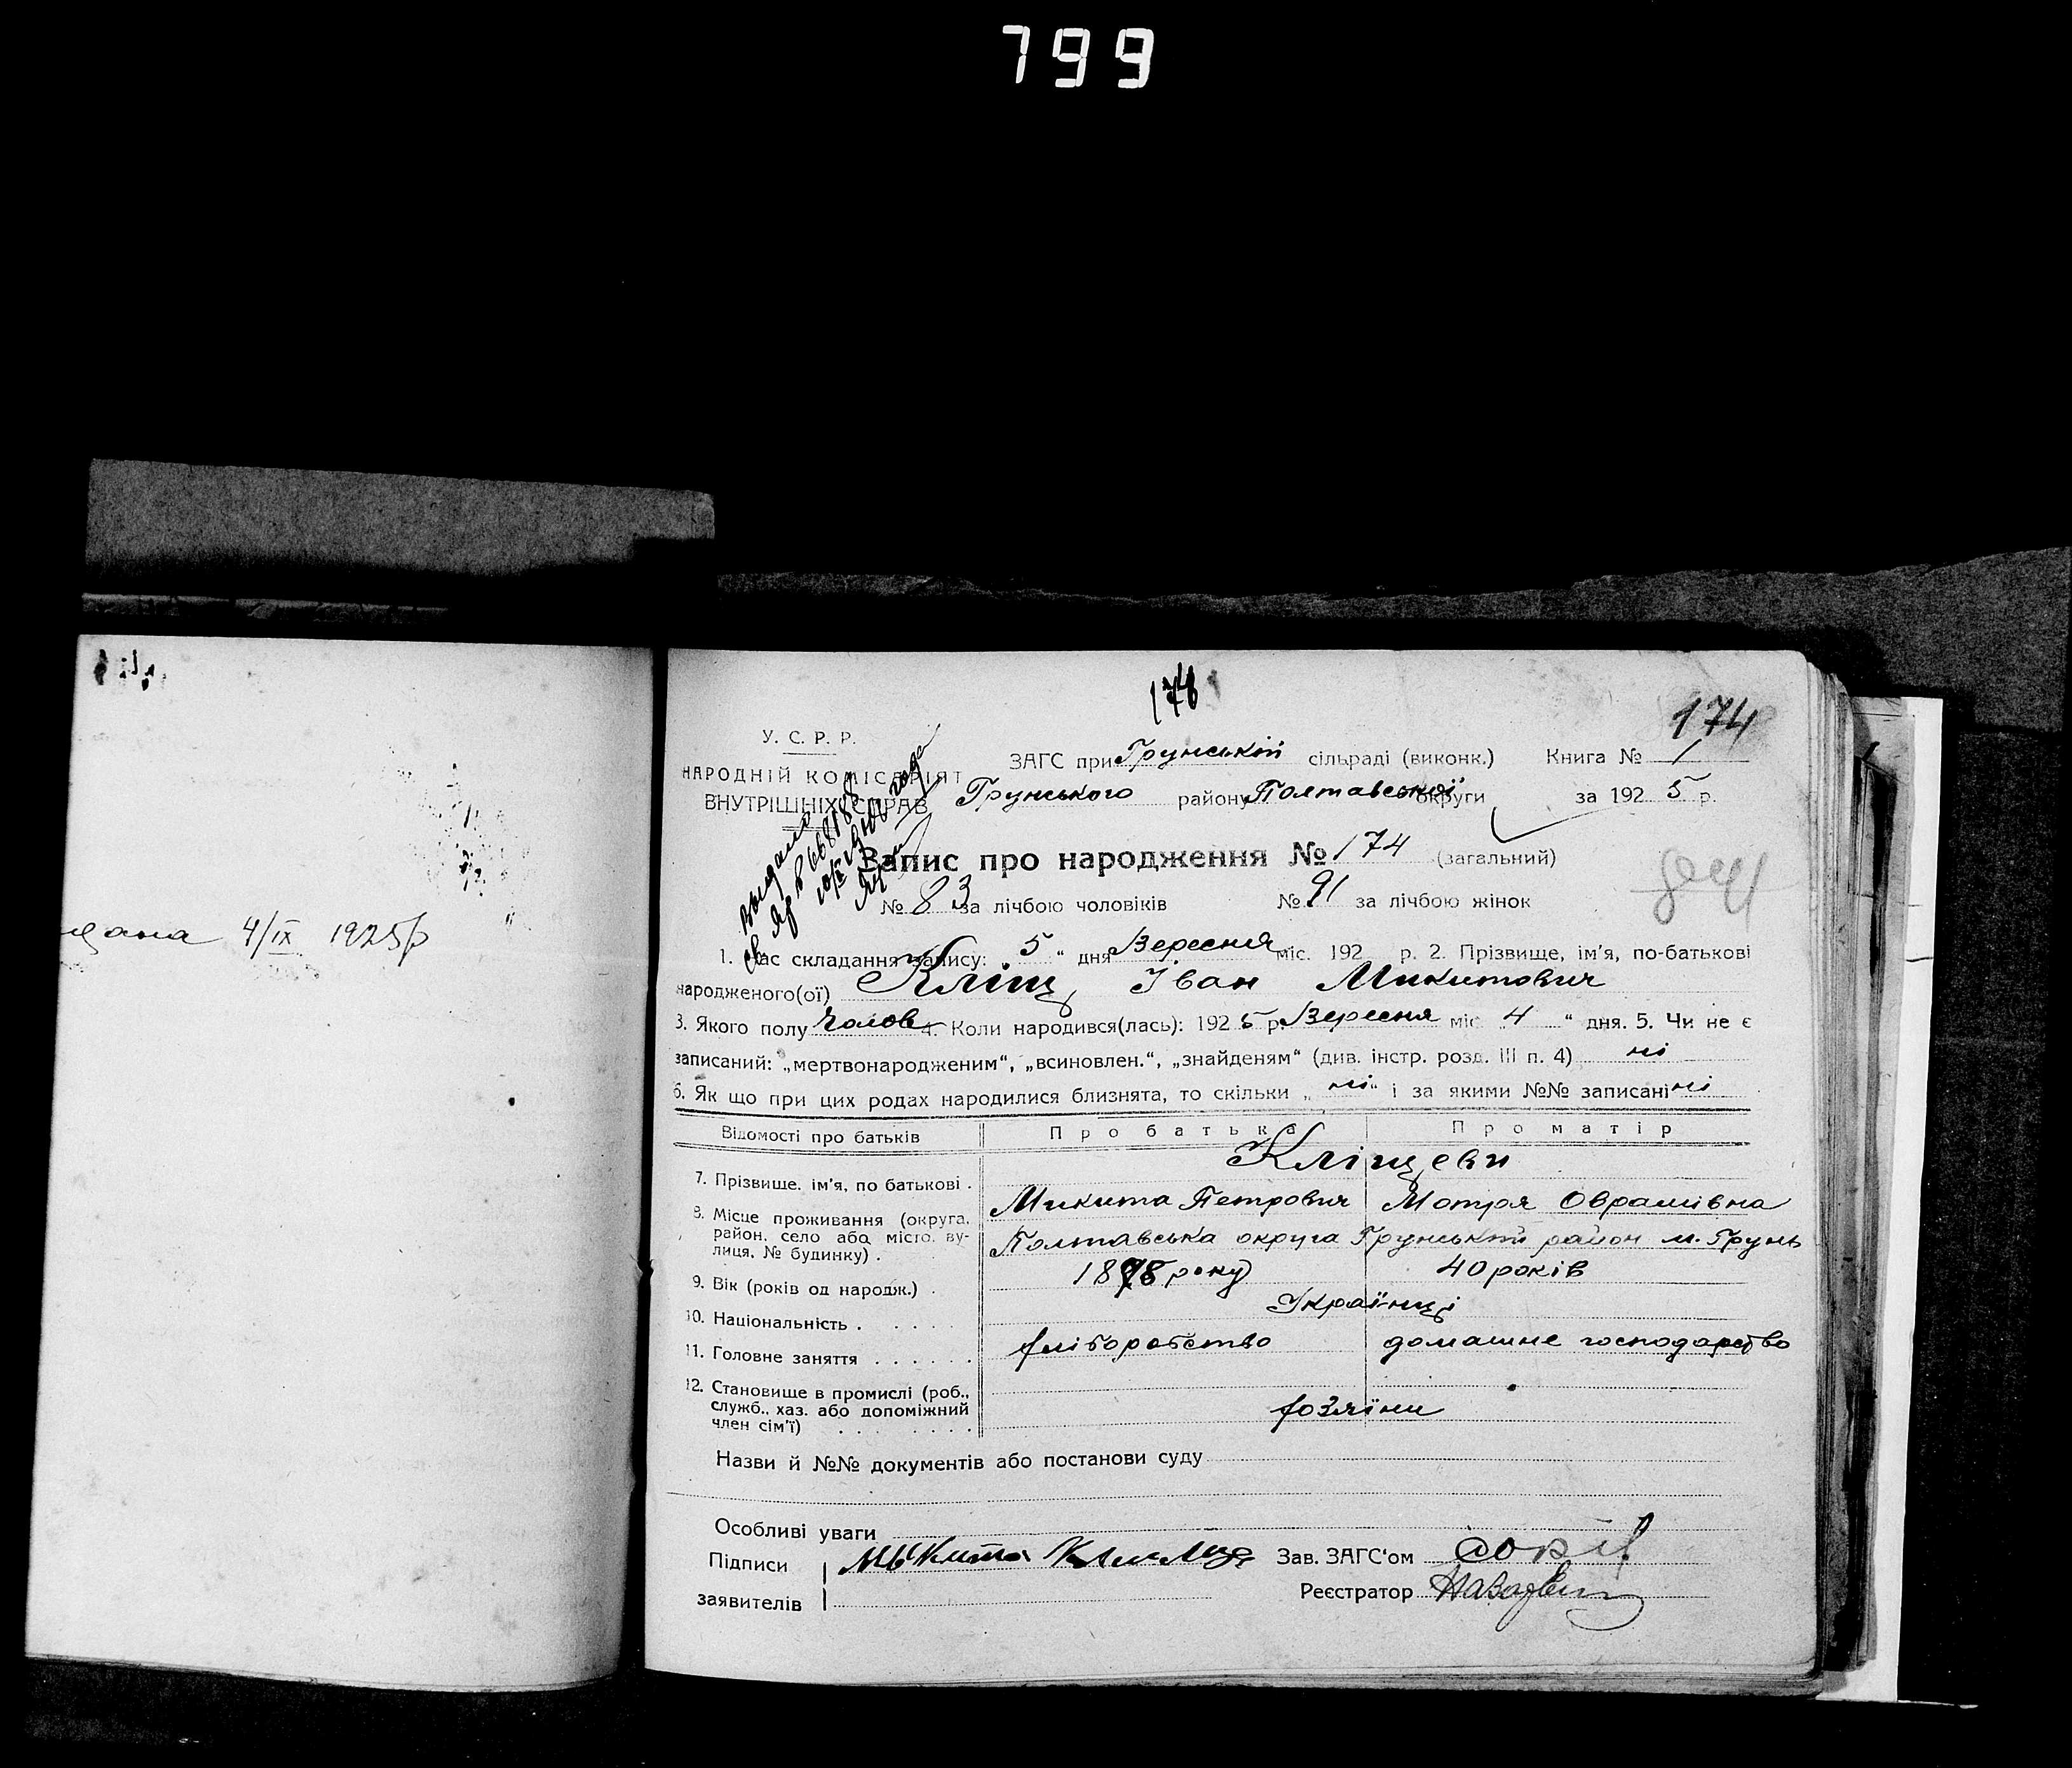 799
178
174
У. С. Р. Р.
НАРОДНІЙ КОМІСАРІЯТ
ВНУТРІШНІХ СПРАВ
ЗАГС при Грунській сільраді (виконк.) Книга № 1
Грунського району Полтавської округи за 192 5 р.
Запис про народження № 174 (загальний)
№ 83 за лічбою чоловіків № 91 за лічбою жінок
дана 4/IX 1925 р
1. Час складання запису: 5 " дня Вересня міс. 192 р. 2. Прізвище, ім'я, по-батькові
народженого(ої) Кліщ Іван Микитович
3. Якого полу Чолов 4. Коли народився(лась): 192 5 р. Вересня міс. 4 " дня. 5. Чи не є
записаний: „мертвонародженим“, „всиновлен.“, „знайденям“ (див. інстр. розд. III п. 4) ні
6. Як що при цих родах народилися близнята, то скільки „ ні “ і за якими №№ записані ні
Відомості про батьків Про батька Про матір
Кліщеви
7. Прізвище, ім'я, по батькові . Микита Петрович Мотря Оврамівна
8. Місце проживання (округа, район, село або місто, вулиця, № будинку) . Полтавська округа Грунський район м. Грунь
9. Вік (років од народж.) . 1878 року 40 років
10. Національність . . . . . . Українці
11. Головне заняття . . . . . . хліборобство домашне господарство
12. Становище в промислі (роб.,
служб., хаз. або допоміжний
член сім'ї) . . . . . . . . хозяїни
Назви й №№ документів або постанови суду
Особливі уваги
Підписи Микита Зав. ЗАГС'ом
заявителів Реєстратор